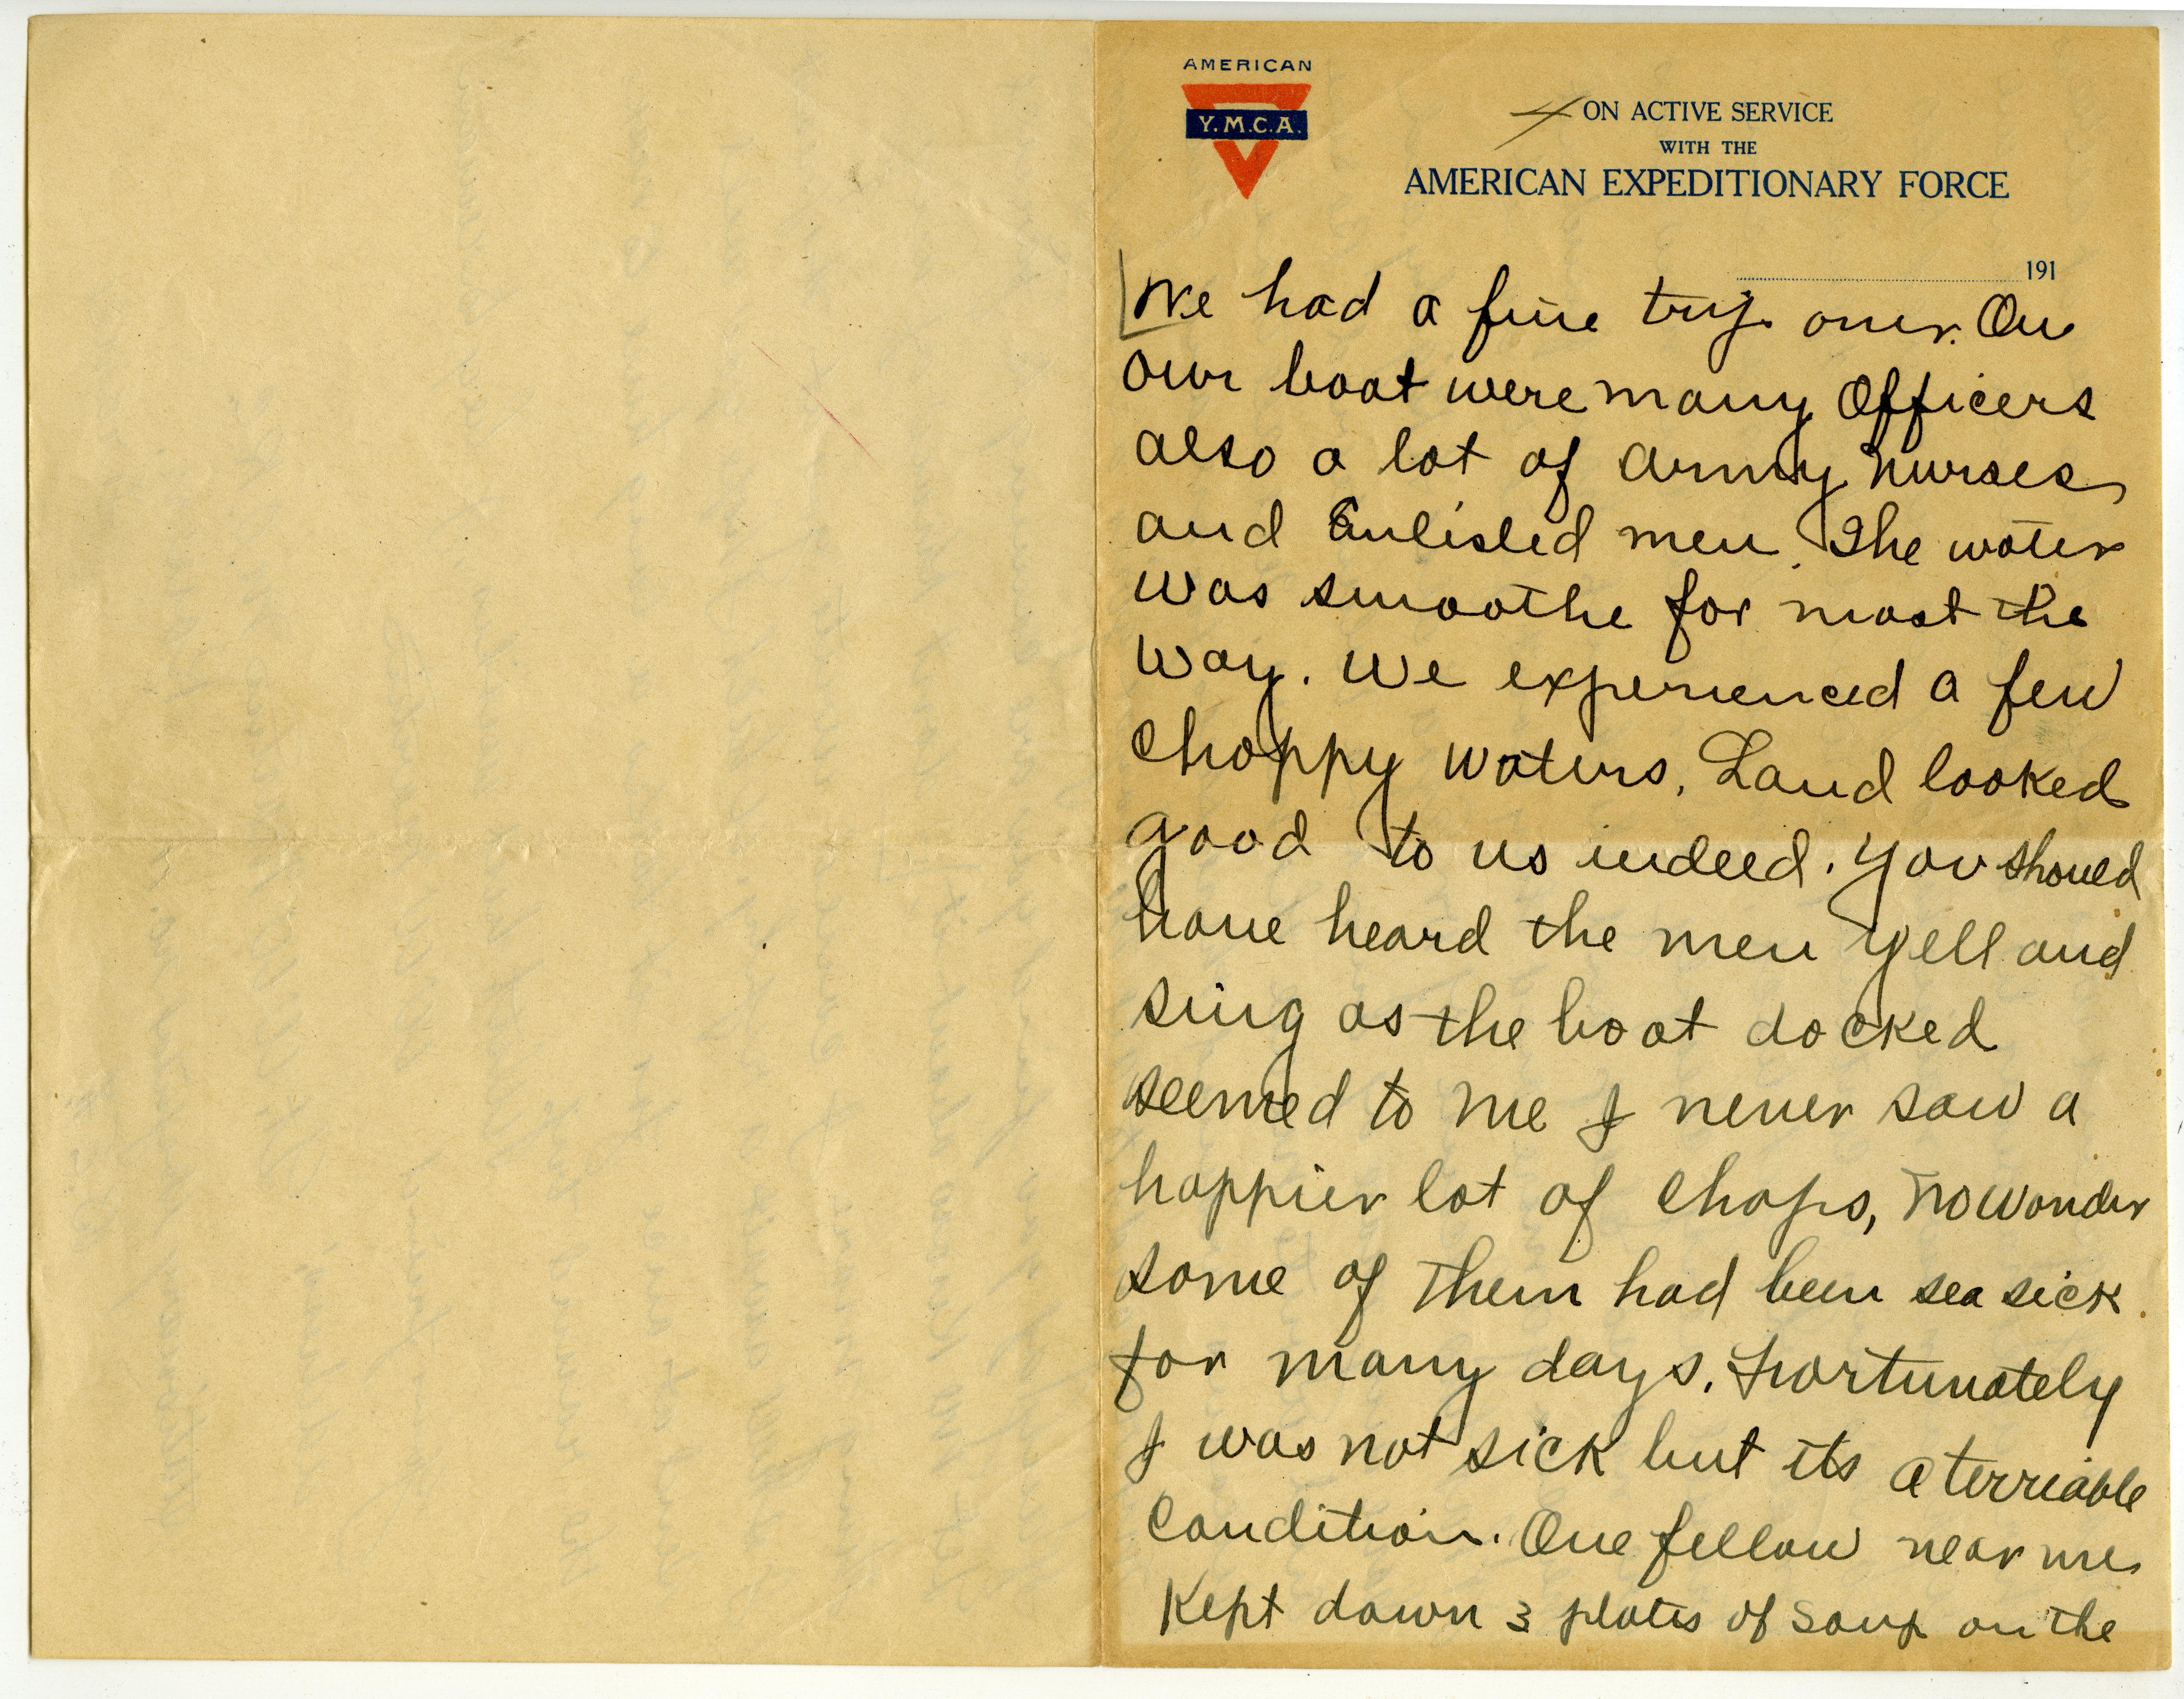 AMERICAN
Y.M.C.A.
4
ON ACTIVE SERVICE
WITH THE
AMERICAN EXPEDITIONARY FORCE
191
We had a fine trip over. On
our boat were many Officers
also a lot of army nurses
and Enlisted men. The water
was smoothe for most the
way. We experienced a few
choppy waters. Land looked
good to us indeed. You should
have heard the men yell and
sing as the boat docked
seemed to me I never saw a
happier lot of chaps, no wonder
some of them had been sea sick
for many days. Fortunately
I was not sick but its a terriable
condition. One fellow near me
Kept down 3 plates of soup on the